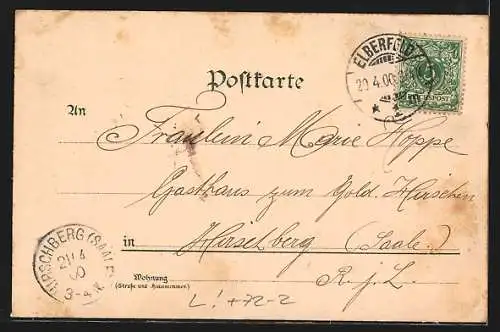 Postkarte
ELBERFELD
29.4.00
REICHSPOST
An
Fräulein Marie Hoppe
Gasthaus zum Gold. Hirschen
in Hirschberg (Saale)
R. j. L.
Wohnung
(Straße und Hausnummer)
HIRSCHBERG (SAALE)
4
00
3-4 N.